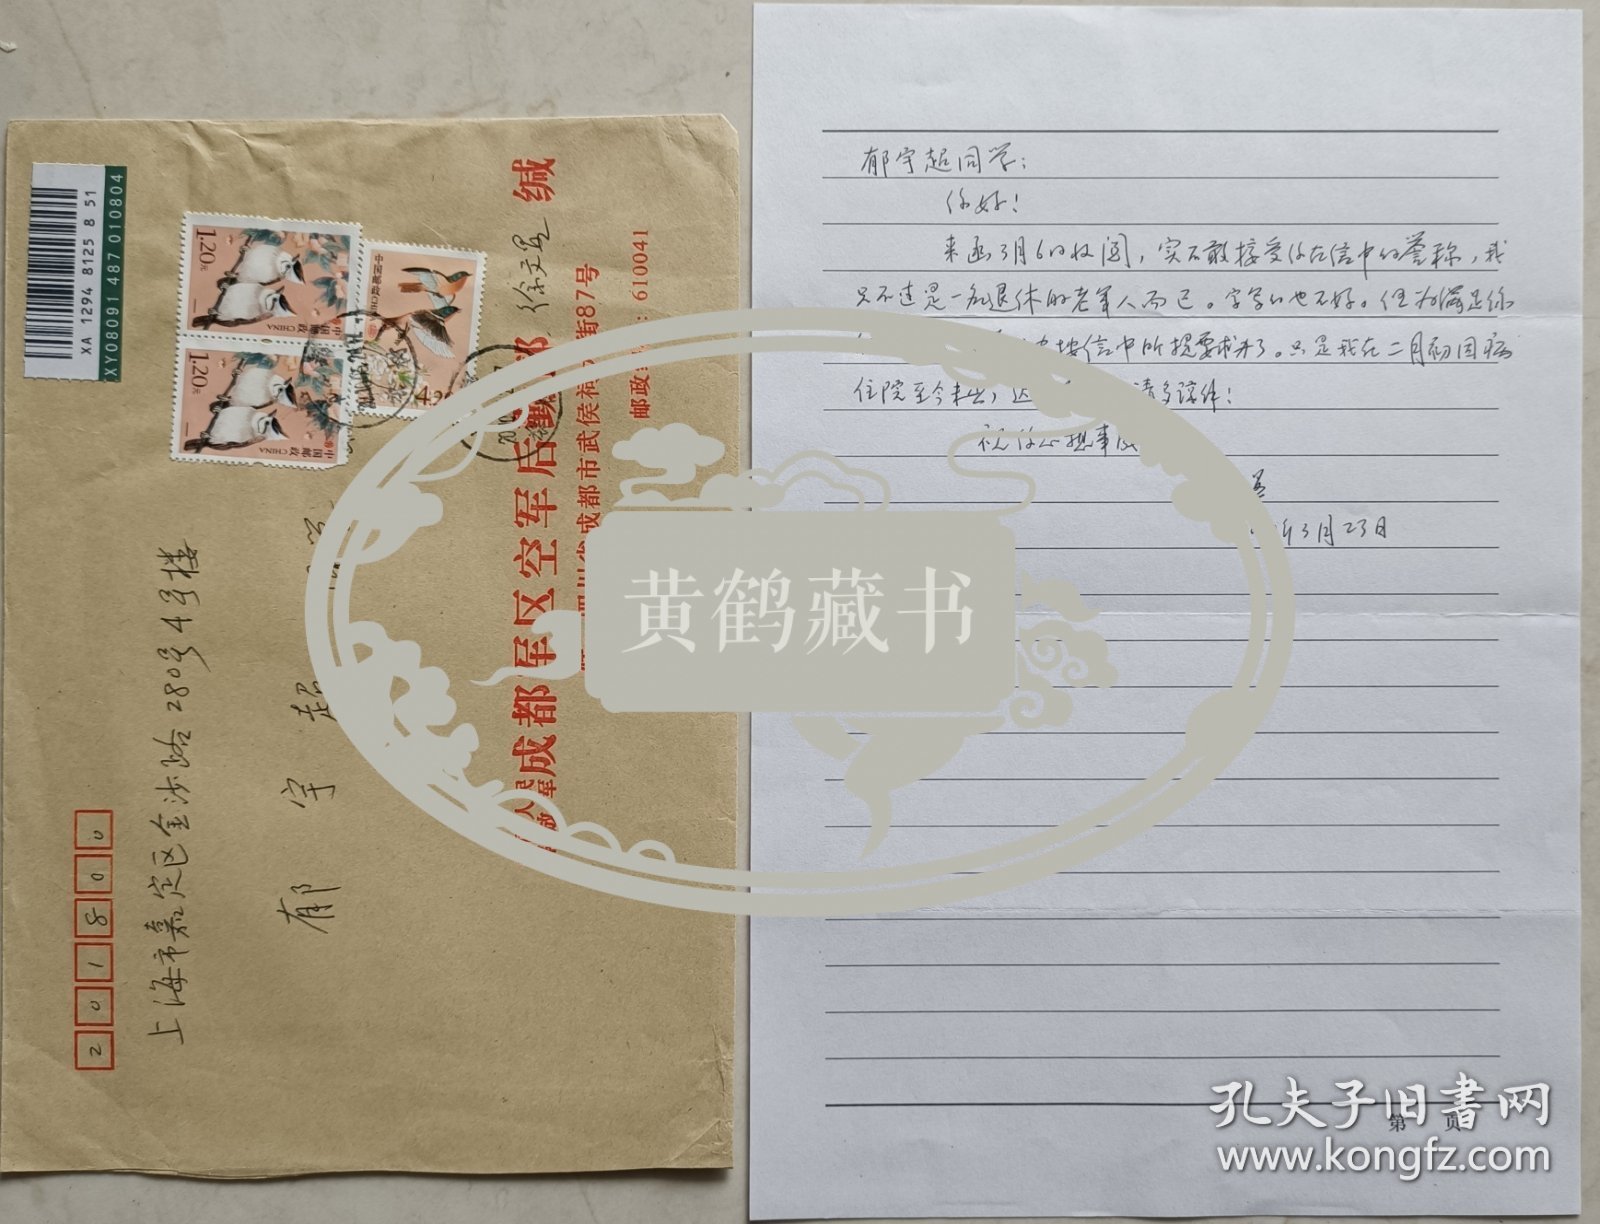 XA 1294 8125 8 51
XY08091487 010804
1.20元
中国邮政 CHINA
1.20元
中国邮政 CHINA
中国邮政 CHINA
成都军区空军后勤部 缄
成都市武侯祠
街87号
邮政
610041
上海市嘉定区金沙路280号4号楼
郁 宇 超
201800
郁宇超同学:
你好!
来函3月6日收阅,实不敢接受你在信中的誉称,我
只不过是一名退休的老军人而已。字写的也不好。但为满足你
按信中所提要求
了。只是我在二月初因病
住院至今未出,
请多谅解!
祝你心想事成
年3月23日
第 页
黄鹤藏书
孔夫子旧书网
www.kongfz.com